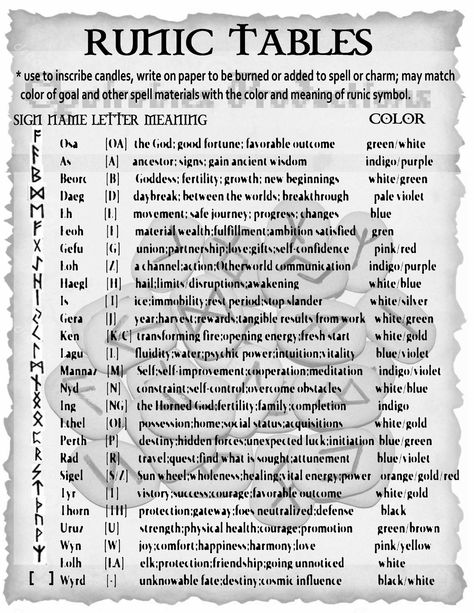 RUNIC TABLES
* use to inscribe candles, write on paper to be burned or added to spell or charm; may match
color of goal and other spell materials with the color and meaning of runic symbol.
SIGN NAME LETTER MEANING COLOR
ᚩ Osa [OA] the God; good fortune; favorable outcome green/white
ᚨ As [A] ancestor; signs; gain ancient wisdom indigo/purple
ᛒ Beorc [B] Goddess; fertility; growth; new beginnings white/green
ᛞ Daeg [D] daybreak; between the worlds; breakthrough pale violet
ᛖ Eh [E] movement; safe journey; progress; changes blue
ᚠ Feoh [F] material wealth;fulfillment;ambition satisfied gren
Gefu [G] union;partnership;love;gifts;self-confidence pink/red
Eoh [Z] a channel;action;Otherworld communication indigo/purple
Haegl [H] hail;limits/disruptions;awakening white/blue
ᛁ Is [I] ice;immobility;rest period;stop slander white/silver
Gera [J] year;harvest;rewards;tangible results from work white/green
Ken [K/C] transforming fire;opening energy;fresh start white/gold
ᛚ Lagu [L] fluidity;water;psychic power;intuition;vitality blue/violet
Mannaz [M] Self;self-improvement;cooperation;meditation indigo/violet
Nyd [N] constraint;self-control;overcome obstacles white/blue
Ing [NG] the Horned God;fertility;family;completion indigo
Ethel [OE] possession;home;social status;acquisitions white/gold
Perth [P] destiny;hidden forces;unexpected luck;initiation blue/green
ᚱ Rad [R] travel;quest;find what is sought;attunement blue/violet
Sigel [S/Z] Sun wheel;wholeness;healing;vital energy;power orange/gold/red
ᛏ Tyr [T] vistory;success;courage;favorable outcome white/gold
ᚦ Thorn [TH] protection;gateway;foes neutralized;defense black
ᚢ Uruz [U] strength;physical health;courage;promotion green/brown
ᚹ Wyn [W] joy;comfort;happiness;harmony;love pink/yellow
Eolh [EA] elk;protection;friendship;going unnoticed white
[ ] Wyrd [-] unknowable fate;destiny;cosmic influence black/white